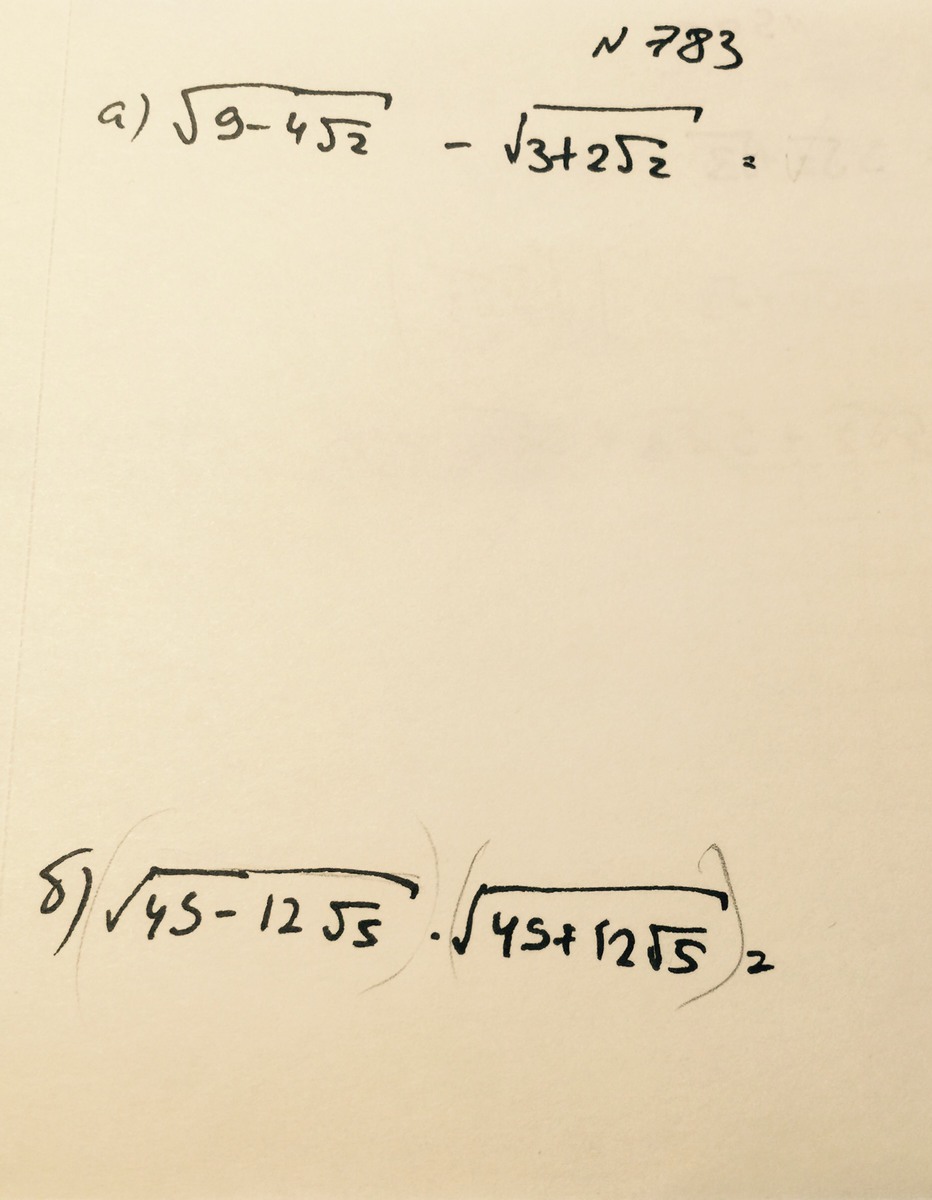 N 783
а) √(9-4√2) - √(3+2√2) =
б) (√(45-12√5)) · (√(45+12√5)) =